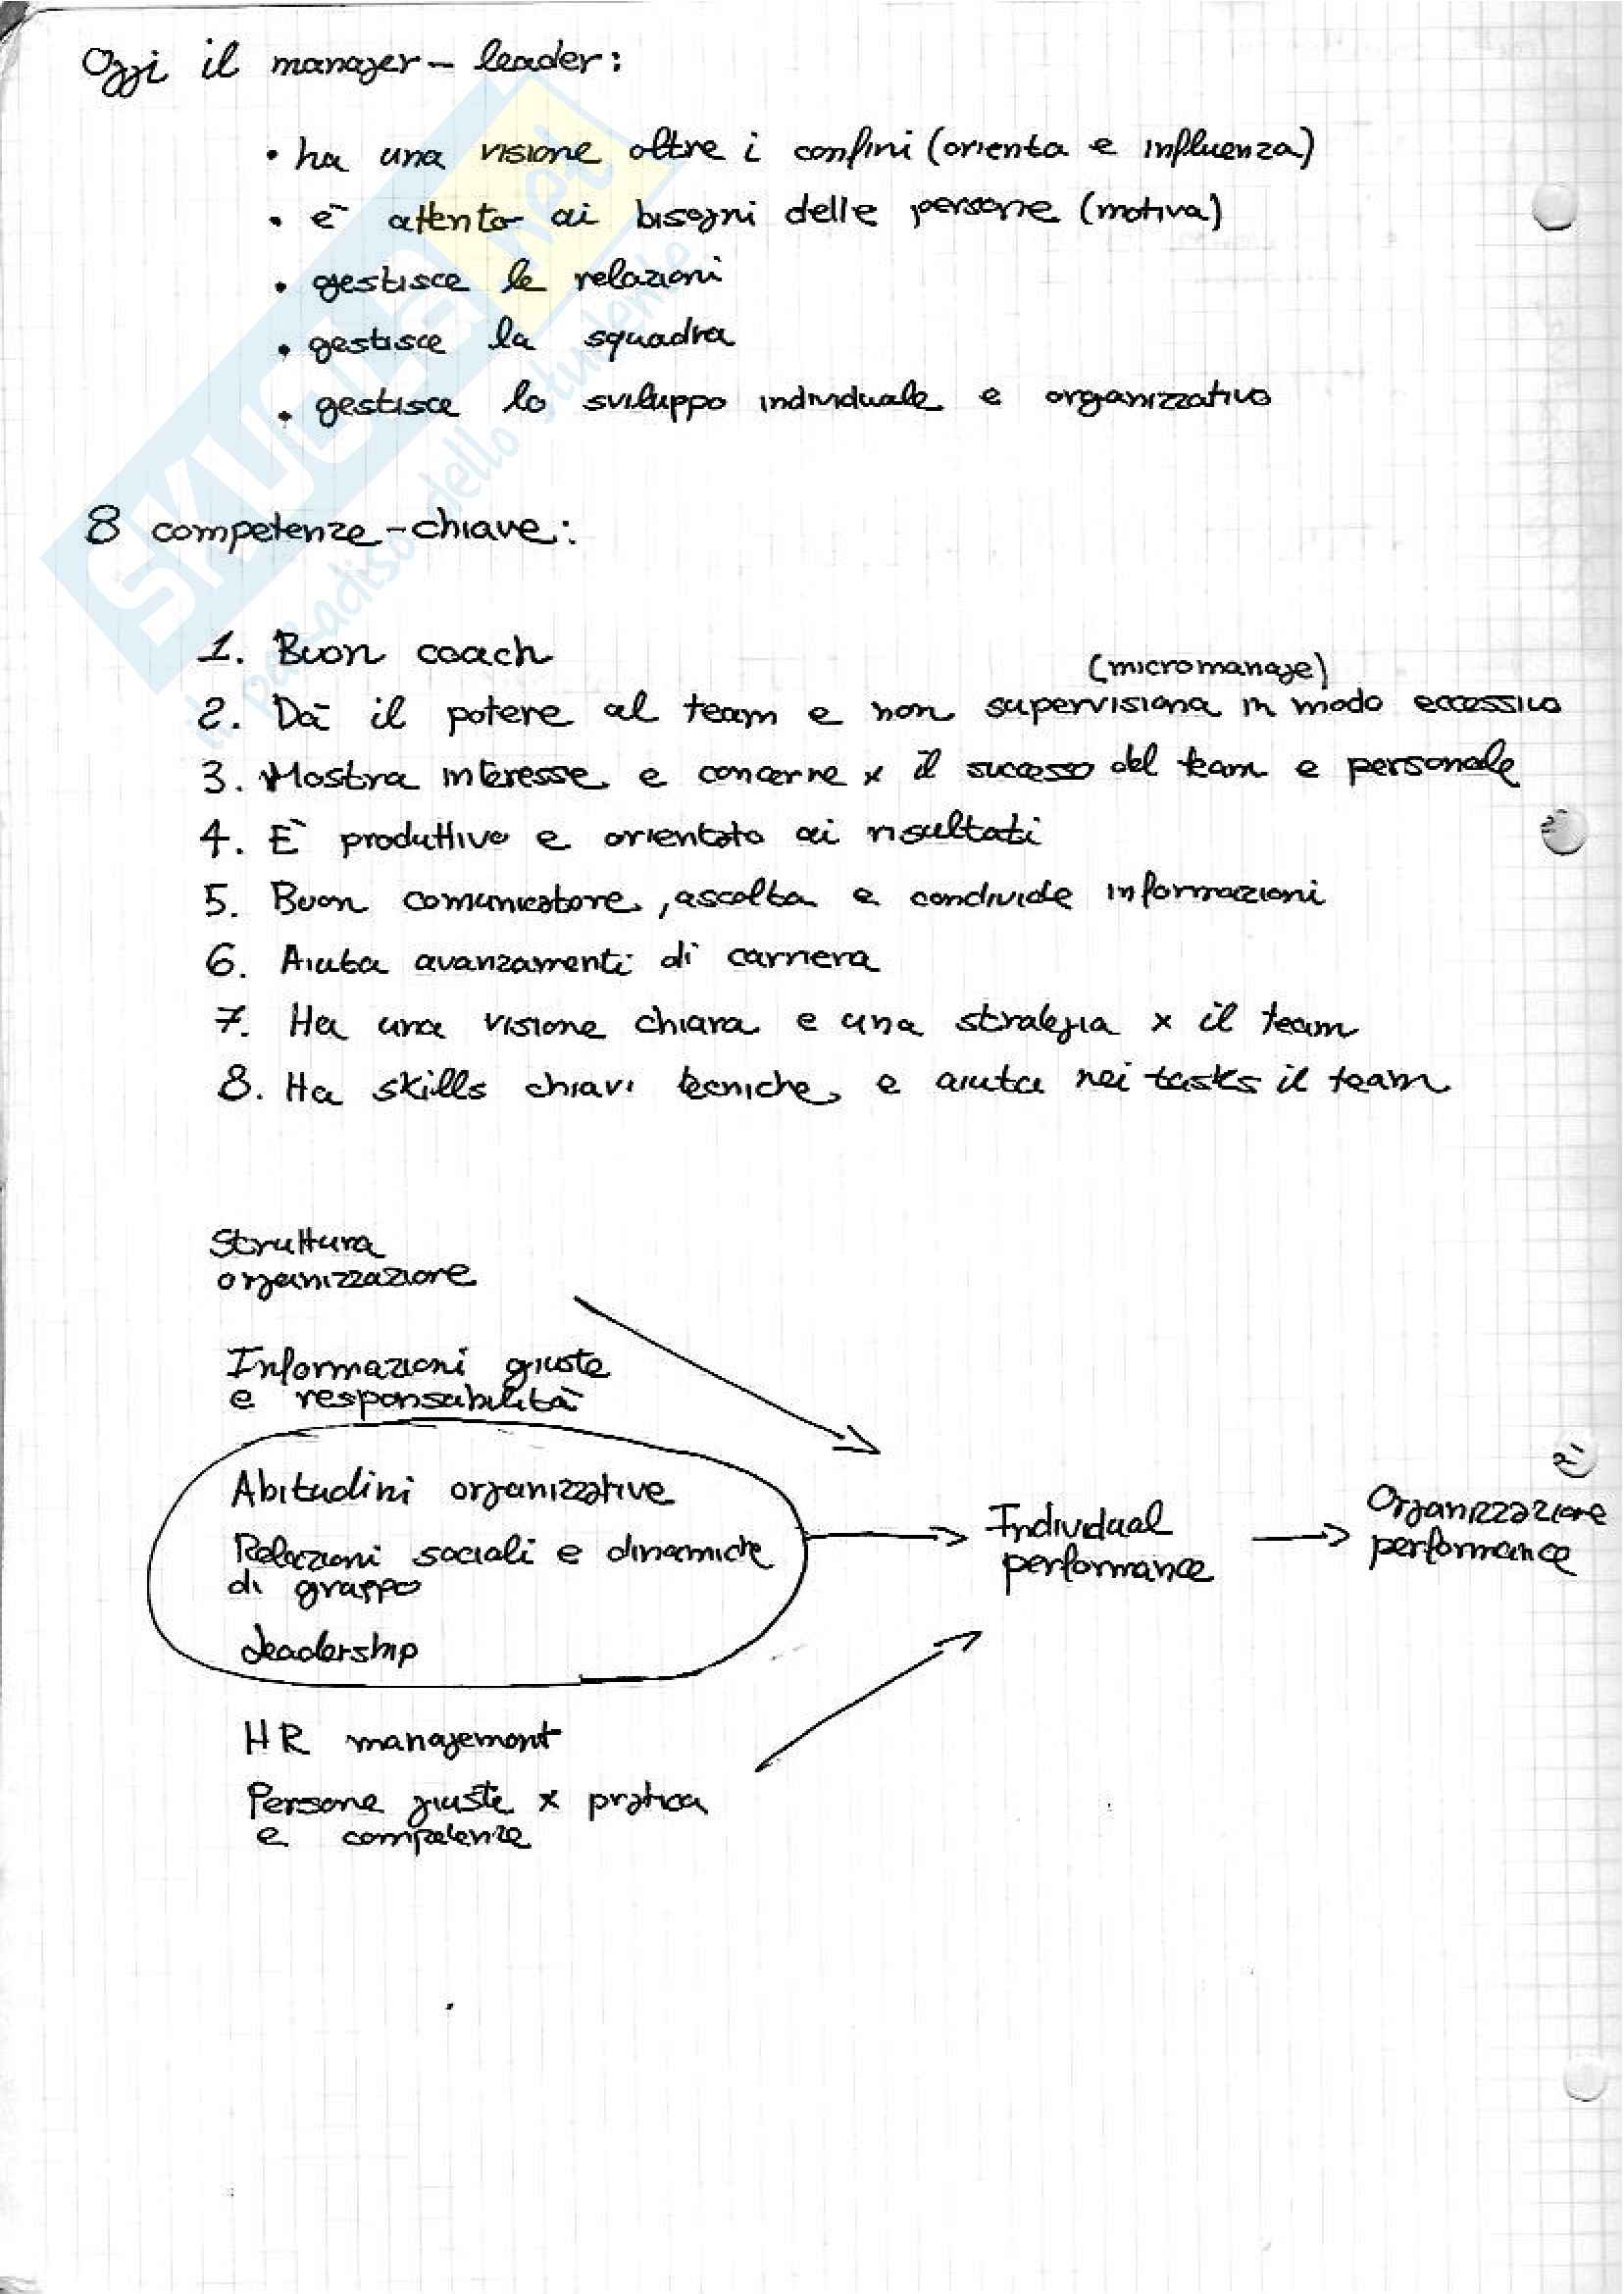 Oggi il manager - leader:
• ha una visione oltre i confini (orienta e influenza)
• è attento ai bisogni delle persone (motiva)
• gestisce le relazioni
• gestisce la squadra
• gestisce lo sviluppo individuale e organizzativo
SKUOLA.net
il paradiso dello studente
8 competenze-chiave:
1. Buon coach
(micromanage)
2. Dà il potere al team e non supervisiona in modo eccessivo
3. Mostra interesse e concerne x il successo del team e personale
4. È produttivo e orientato ai risultati
5. Buon comunicatore, ascolta e condivide informazioni
6. Aiuta avanzamenti di carriera
7. Ha una visione chiara e una strategia x il team
8. Ha skills chiavi tecniche e aiuta nei tasks il team
Struttura
organizzazione
Informazioni giuste
e responsabilità
Abitudini organizzative
Relazioni sociali e dinamiche
di gruppo
Leadership
HR management
Persone giuste x pratica
e competenze
Individual
performance
Organizzazione
performance